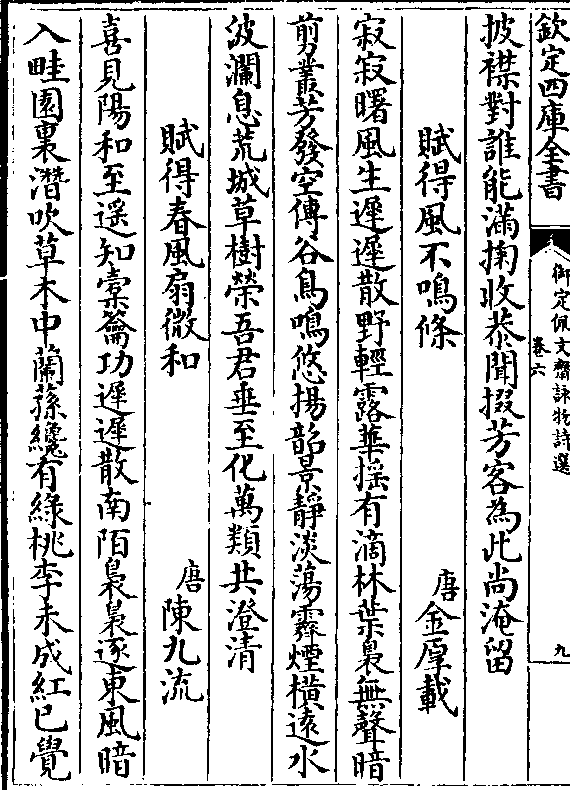 欽定四庫全書
御定佩文齋詠物詩選
卷六
九
披襟對誰能滿掬收恭聞掇芳客為此尚淹留
賦得風不鳴條
唐金厚載
寂寂曙風生遲遲散野輕露華揺有滴林葉裊無聲暗
剪叢芳發空傳谷鳥鳴悠揚韶景靜淡蕩霽煙橫遠水
波瀾息荒城草樹榮吾君垂至化萬類共澄清
賦得春風扇微和
唐陳九流
喜見陽和至遥知橐籥功遲遲散南陌裊裊逐東風暗
入畦園裏潛吹草木中蘭蓀纔有綠桃李未成紅已覺